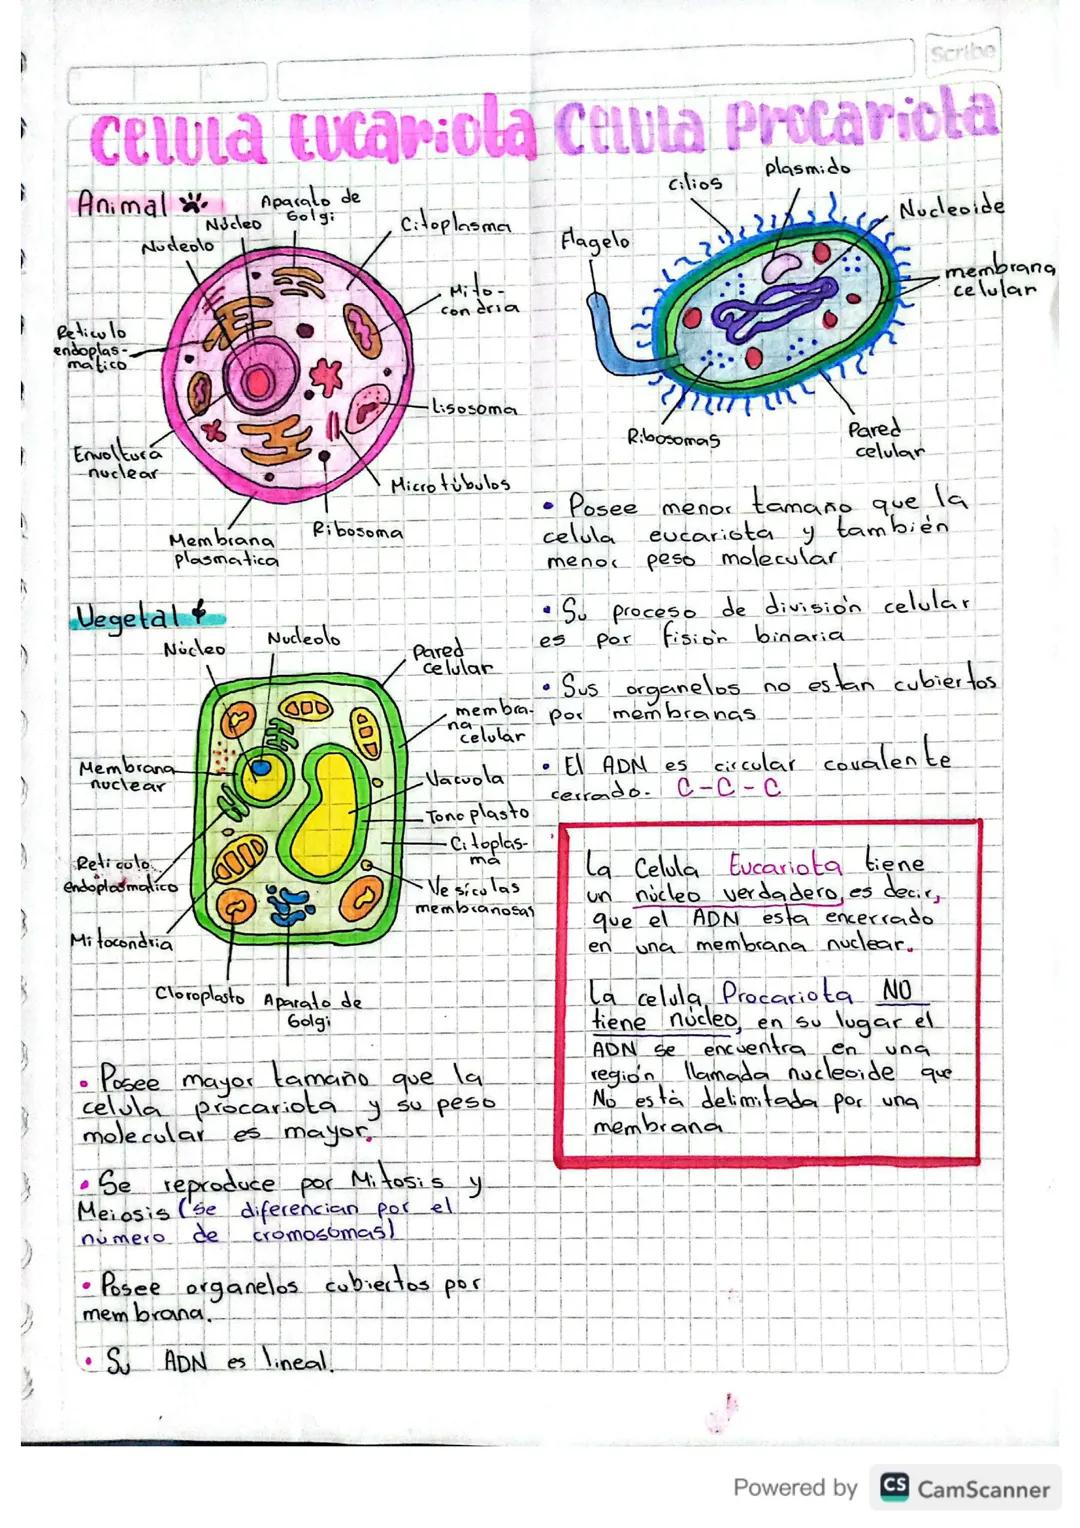 Scribe
Celula Eucariota Celula Procariota
Animal
Aparato de
Golgi
Núcleo
Nucleolo
Citoplasma
Mito-
condria
Reticulo
endoplas-
matico
Lisosoma
Envoltura
nuclear
Microtúbulos
Ribosoma
Membrana
plasmatica
Vegetal
Núcleo
Nucleolo
Pared
celular
membra-
na
celular
Membrana
nuclear
Vacuola
Tonoplasto
Citoplas-
ma
Reticulo
endoplasmatico
Vesiculas
membranosas
Mitocondria
Cloroplasto
Aparato de
Golgi
• Posee mayor tamaño que la
celula procariota y su peso
molecular es mayor.
• Se reproduce por Mitosis y
Meiosis (se diferencian por el
número de cromosomas)
• Posee organelos cubiertos por
membrana.
• Su ADN es lineal.
cilios
plasmido
Nucleoide
Flagelo
membrana
celular
Ribosomas
Pared
celular
• Posee menor tamaño que la
celula eucariota y también
menor peso molecular
• Su proceso de división celular
es por fisión binaria
• Sus organelos no estan cubiertos
por membranas
• El ADN es circular covalente
cerrado. C-C-C
La Celula Eucariota tiene
un núcleo verdadero, es decir,
que el ADN esta encerrado
en una membrana nuclear.
La celula Procariota NO
tiene núcleo, en su lugar el
ADN se encuentra en una
región llamada nucleoide que
No está delimitada por una
membrana
Powered by CS CamScanner